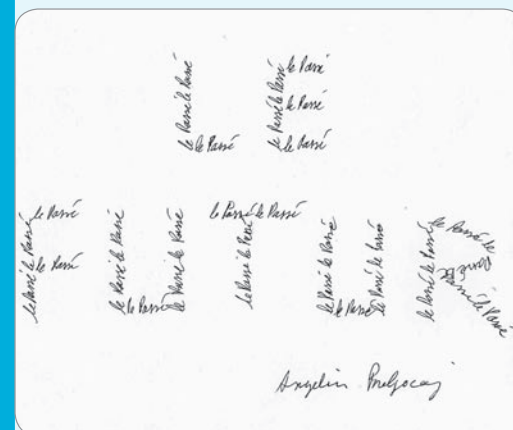 le Passé le Passé
le Passé
le Passé le Passé
le Passé
le Passé
le Passé
le Passé le Passé
le Passé
le Passé
le Passé le Passé
le Passé
le Passé le Passé
le Passé le Passé
le Passé le Passé
le Passé le Passé
le Passé
le Passé le Passé
le Passé le Passé
le Passé le Passé
Passé le Passé
Angelin Preljocaj